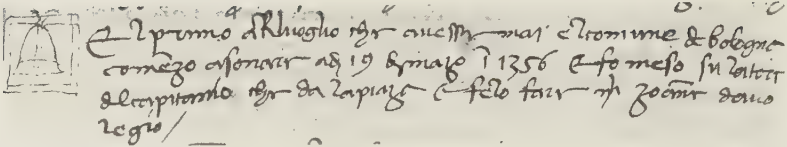 El primo arlioglio che avesse mai el comune de bologna
comenzo a sonare adi 19 de mazo 1356 E fo meso su la tore
del capitanio che da la piaza E felo fare m zoane da vio
legio